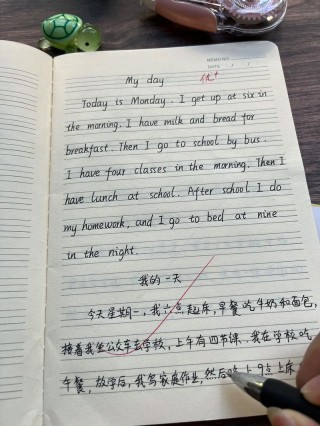 MEMO NO.
DATE / /
My day
优+
Today is Monday. I get up at six in
the morning. I have milk and bread for
breakfast. Then I go to school by bus.
I have four classes in the morning. Then I
have lunch at school. After school I do
my homework, and I go to bed at nine
in the night.
我的一天
今天星期一,我六点起床,早餐吃牛奶和面包,
接着我坐公交车去学校,上午有四节课,我在学校吃
午餐,放学后,我写家庭作业,然后晚上9点上床